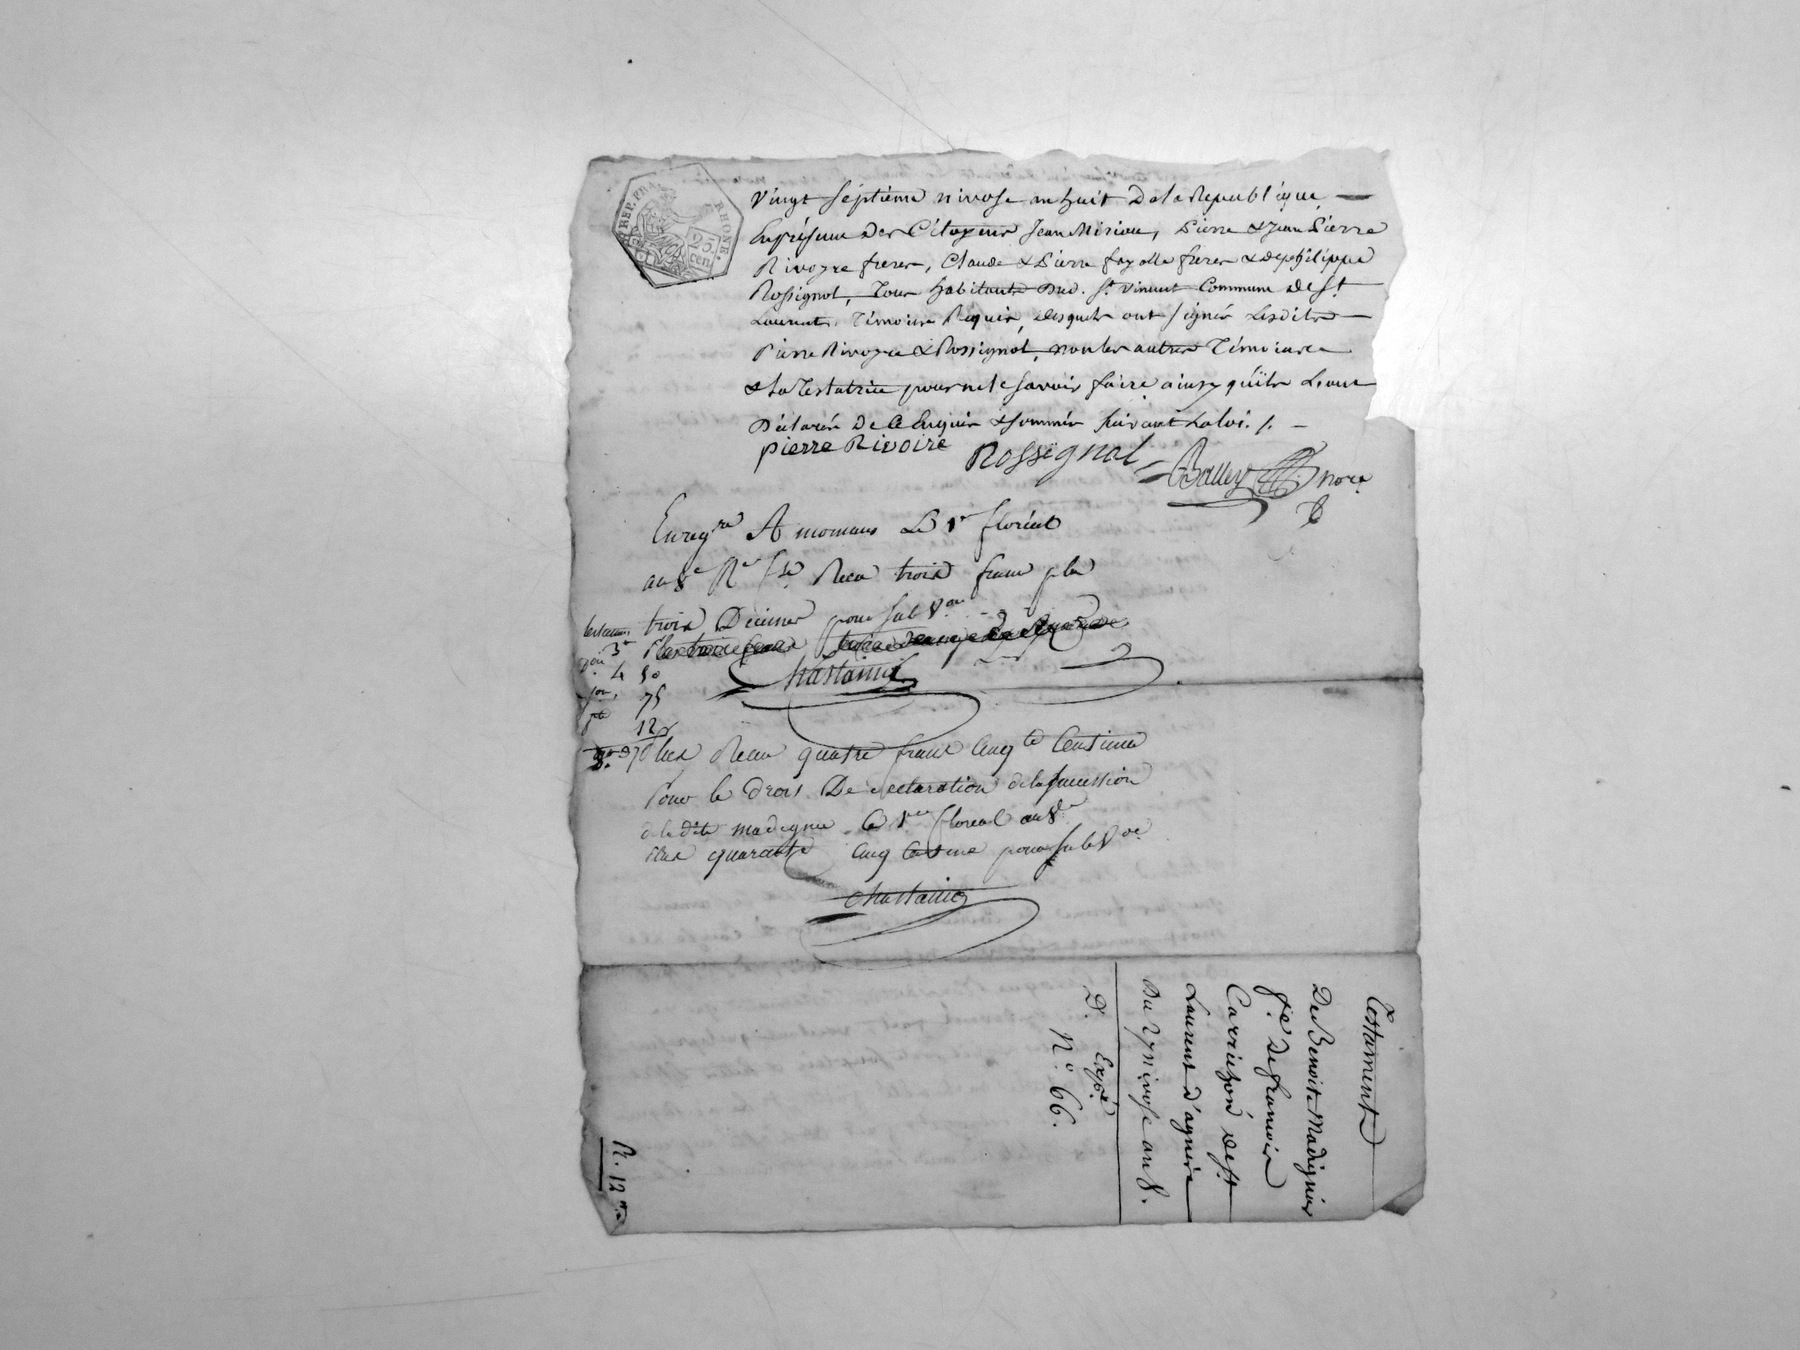 REP. FRA.
RHONE.
25 cen
vingt septieme nivose an huit De la Republique —
En présence Des Citoyens Jean Miriou, Pierre & Jean Pierre
Rivoyre freres, Claude & Pierre fayolle freres & de philippe
Rossignol, Tous habitants Dud. St. vincent Commune de St.
Laurent, Témoins Requis, desquels ont signés Lesdits
Pierre Rivoyre & Rossignol, non les autres Témoins
& La Testatrice pour ne le savoir faire ainsy qu'ils L'ont
Déclarés De Ce Enquis & sommés suivant La loi. /. —
pierre Rivoire Rossignol Balley nore
Enregré A mornans Le 1er floréal
an 8e Recu trois francs plus
trois Decimes pour subvon
Chastaing
testam. 3
4 50
75
12
Plus Recu quatre francs Cinqte Centimes
Pour le Droit De declaration de la succession
de la dite madignier le 1er floreal an 8e
plus quarante Cinq Centimes pour Subvon
Chastaing
Testament
De Benoite Madignier
fe. De francois
Carrichon de St.
Laurent d'agnire
Du 27 nivose an 8.
Expé.
D. No. 66.
R. 12